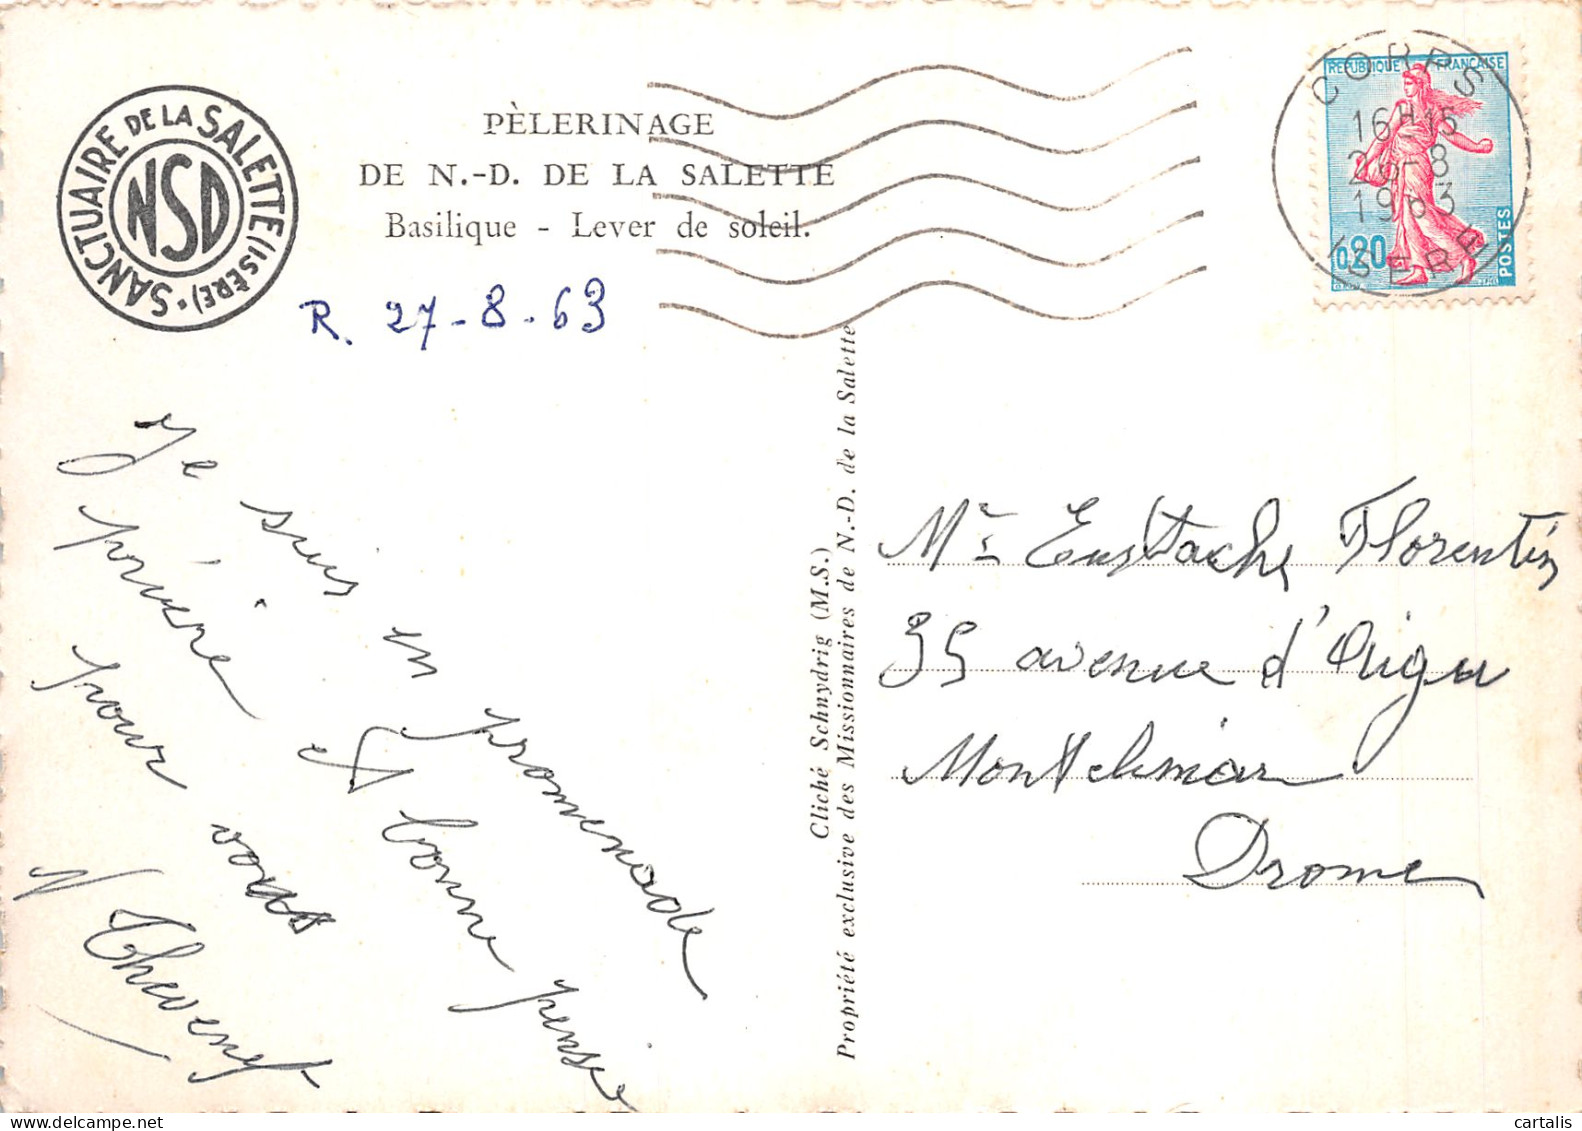 SANCTUAIRE DE LA SALETTE (ISÈRE).
NSD
PÈLERINAGE
DE N.-D. DE LA SALETTE
Basilique - Lever de soleil.
R. 27-8-63
RÉPUBLIQUE FRANÇAISE
0,20
POSTES
CORPS
16H15
26-8
1963
ISERE
Je suis en promenade
prière et bonne pensée
pour vous
Thevenet
Cliché Schnydrig (M.S.)
Propriété exclusive des Missionnaires de N.-D. de la Salette
Mr Eustache Florentin
35 avenue d'Aigu
Montelimar
Drome
cartalis